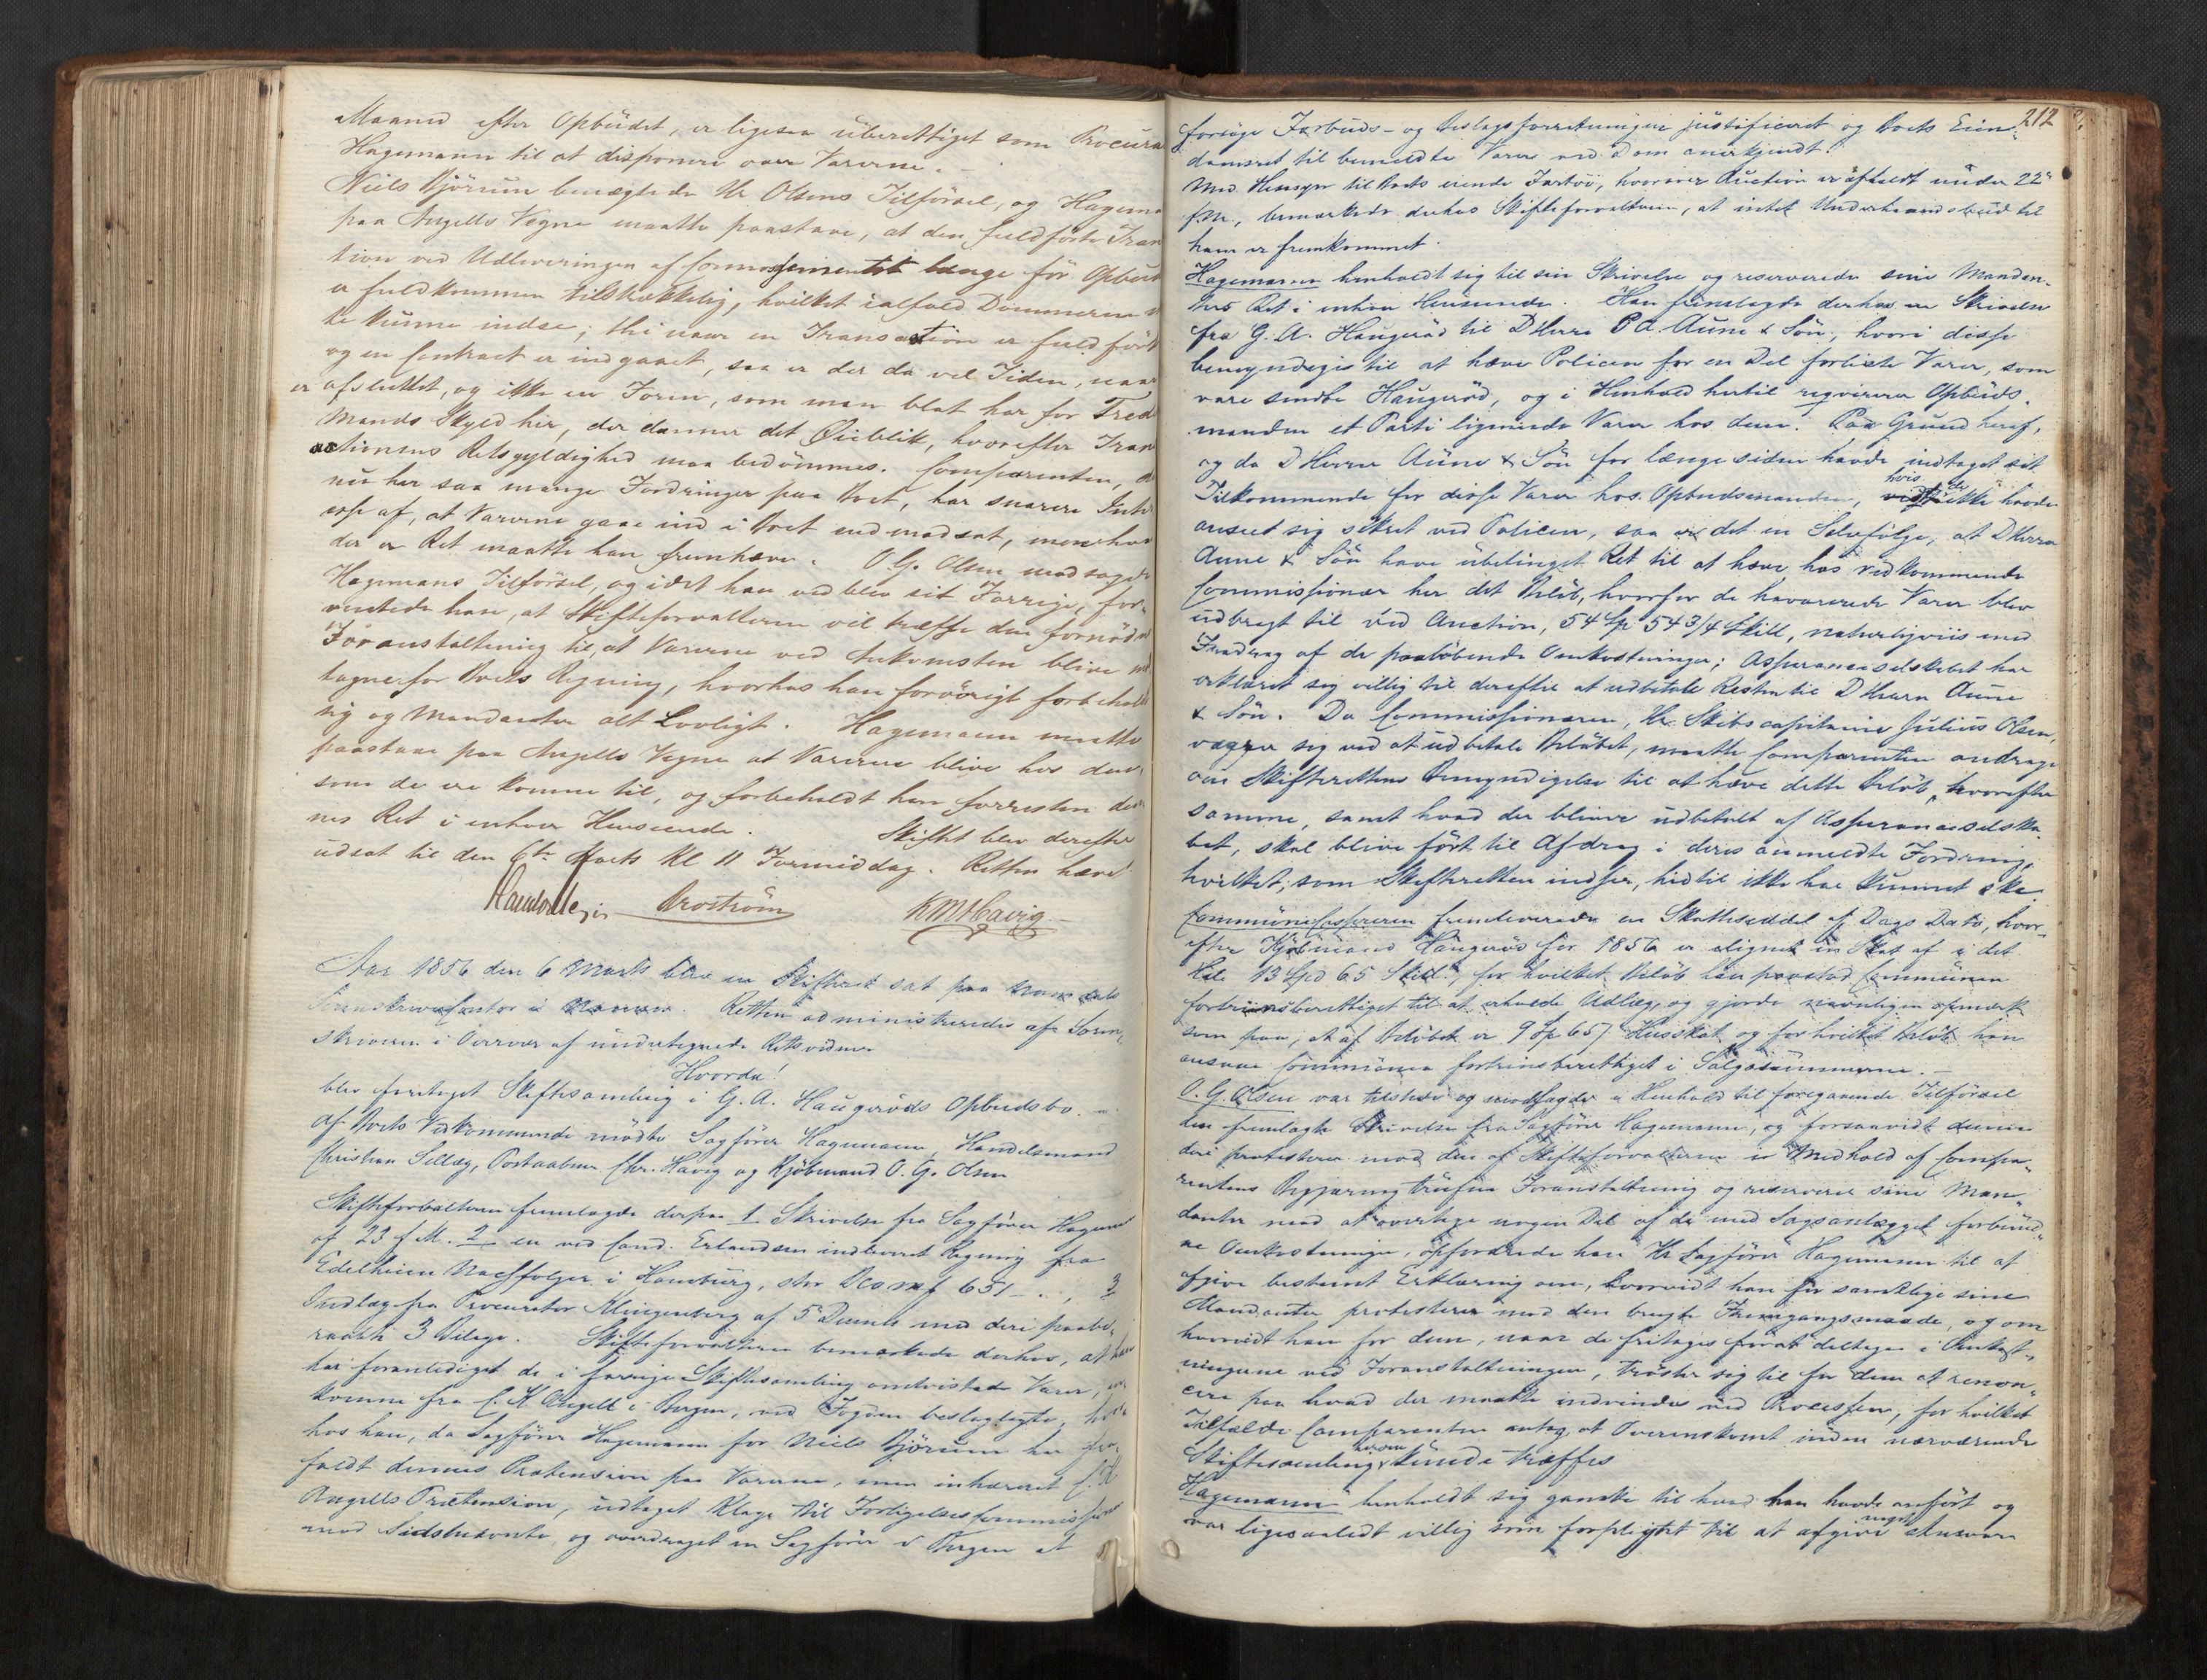 Maaned efter Opbudet, er ligesaa uberettiget som Procura
Hagemann til at disponere over Varerne.
Niels Björum benægtede Hr. Olsens Tilförsel, og Hagema
paa Angells Vegne maatte paastaae, at den fuldförte Tran
tion ved Udleveringen af længe för Opbud
er fuldkommen tilstrækkelig, hvilket ialfald Dommeren
kunne indse; thi naar en Transaction er fuldfört
og en Contract er indgaaet, saa er der da vel Tiden, naar
er afsluttet, og ikke en Form, som man blot har for Tred
Mands Skyld her, der danner det Øieblik, hvorefter Tran
actionens Retsgyldighed maa bedömmes. Comparenten,
nu har saa mange Fordringer paa Boet, har snarere Inte
esse af, at Varerne gaae ind i Boet end modsat, men hva
der er Ret maatte han fremhæve. O. G. Olsen modsagde
Hagemans Tilförsel, og idet han vedblev sit Forrige, for-
ventede han, at Skifteforvalteren vil træffe den fornödne
Foranstaltning til, at Varerne ved Ankomsten blive
tagne for Boets Regning, hvorhos han forövrigt forbehol
sig og Mandanter alt Lovligt. Hagemann maatte
paastaae paa Angells Vegne at Varerne blive hos den
som de ere komne til, og forbeholdt han forresten den
nes Ret i enhver Henseende. Skiftet blev derefter
udsat til den 6te Marts Kl 11 Formiddag. Retten hævet
Broström KMHavig
Aar 1856 den 6 Marts blev en Skifteret sat paa Namdals
Sorenskrivercontor i Namsos. Retten administreredes af Soren
skriveren i Overvær af undertegnede Retsvidner
Hvorda!
blev foretaget Skiftesamling i G. A. Haugeröds Opbudsbo.
Af Boets Vedkommende mödte Sagförer Hagemann, Handelsmand
Christian Sellæg, Postaabner Chr. Havig og Kjöbmand O. G. Olsen
Skifteforvalteren fremlagde derpaa 1 Skrivelse fra Sagförer Hagem
af 23 f. M. 2 en ved Cand. Erlandsen indleveret Regning fra
Edelheim Nachfolger i Hamburg, stor Bco mk 651 - . , 3
Indlæg fra Procurator Klingenberg af 5 Dennes med deri paabe-
raabte 3 Bilage. Skifteforvalteren bemærkede derhos, at han
har foranlediget de i forrige Skiftesamling omtvistede Varer,
komne fra C. K. Angell i Bergen, ved Fogden beslaglagte,
hos han, da Sagförer Hagemann for Niels Björum har fra
faldt dennes Prætension paa Varerne, men inhæreret C. K.
Angells Prætension, udtaget Klage til Forligelsescommissionen
mod Sidstnævnte, og overdraget en Sagförer i Bergen at
212
forsöge Forbuds- og Beslagsforretningen justificeret og Boets Eien-
domsret til bemeldte Varer ved Dom anerkjendt.
Med Hensyn til Boets eiende Fartöi, hvorover Auction er afholdt under 22de
f. M., bemærkede derhos Skifteforvalteren, at intet Underhaandsbud til
ham er fremkommet.
Hagemann henholdt sig til sin Skrivelse og reserverede sine Mandan-
ters Ret i enhver Henseende. Han fremlagde derhos en Skrivelse
fra G. A. Haugeröd til DHerrer P. A. Aune & Sön, hvori disse
bemyndiges til at hæve Policen for en Del forliste Varer, som
vare sendte Haugeröd, og i Henhold hertil reqvirerer Opbuds-
manden et Parti lignende Varer hos dem. Paa Grund heraf,
og da DHerrer Aune & Sön for længe siden havde indtaget sit
Tilkommende for disse Varer hos Opbudsmanden, hvis de ikke havde
anseet sig sikret ved Policen, saa er det en Selvfölge, at DHerrer
Aune & Sön have ubetinget Ret til at hæve hos vedkommende
Commissionær her det Belöb, hvorfor de havarerede Varer blev
udbragt til ved Auction, 54 Sp 54 3/4 Skill, naturligviis med
Fradrag af de paalöbende Omkostninger; Assuranceselskabet har
erklæret sig villig til derefter at udbetale Resten til DHerrer Aune
& Sön. Da Commissionæren, Hr. Skibscapitaine Julius Olsen,
vægrer sig ved at udbetale Belöbet, maatte Comparenten andrage
om Skifterettens Bemyndigelse til at hæve dette Belöb, hvorefter
samme, samt hvad der bliver udbetalt af Assuranceselska-
bet, skal blive fört til Afdrag i deres anmeldte Fordring,
hvilket, som Skifteretten indseer, hidtil ikke har kunnet ske.
Communecassereren fremleverede en Skatteseddel af Dags Dato, hvor-
efter Kjöbmand Haugeröd for 1856 er lignet en Skat af i det
Hele 13 Spd 65 Skill, for hvilket Belöb han paastod Communen
fortrinsberettiget til at erholde Udlæg, og gjorde navnligen opmærk
som paa, at af Belöbet er 9 Sp 65 Husskat og for hvilket Belöb han
ansaae Communen fortrinsberettiget i Salgssummerne.
O. G. Olsen var tilstede og modsagde i Henhold til foregaaende Tilförsel
den fremlagte Skrivelse fra Sagförer Hagemann, og forsaavidt denne
deri protesterer mod den af Skifteforvalteren i Medhold af Compa-
rentens Begjæring trufne Foranstaltning og reserverer sine Man-
danter mod at overtage nogen Del af de med Sagsanlægget forbund-
ne Omkostninger, opfordrede han Hr. Sagförer Hagemann til at
afgive bestemt Erklæring om, hvorvidt han for samtlige sine
Mandanter protesterer mod den brugte Fremgangsmaade, og om
hvorvidt han for dem, naar de fritages for at deltage i Omkost-
ningerne ved Foranstaltningen, tröster sig til for dem at renon-
cere paa hvad der maatte indvindes ved Processen, for hvilket
Tilfælde Comparenten antog, at Overenskomst inden nærværende
Skiftesamling herom kunde træffes
Hagemann henholdt sig ganske til hvad han havde anfört og
var ligesaalidt villig som forpligtet til at afgive noget Ansvar